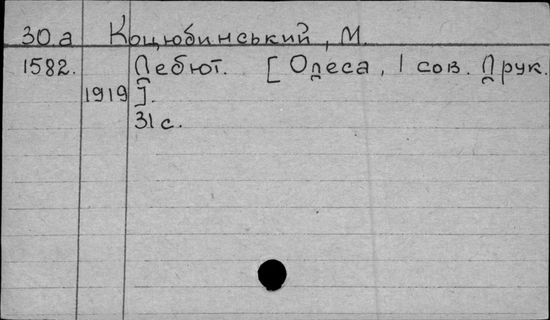 30.a Коцюбинський, М.
1582. Дебют. [Одеса, 1 сов. Друк.
1919].
31 с.